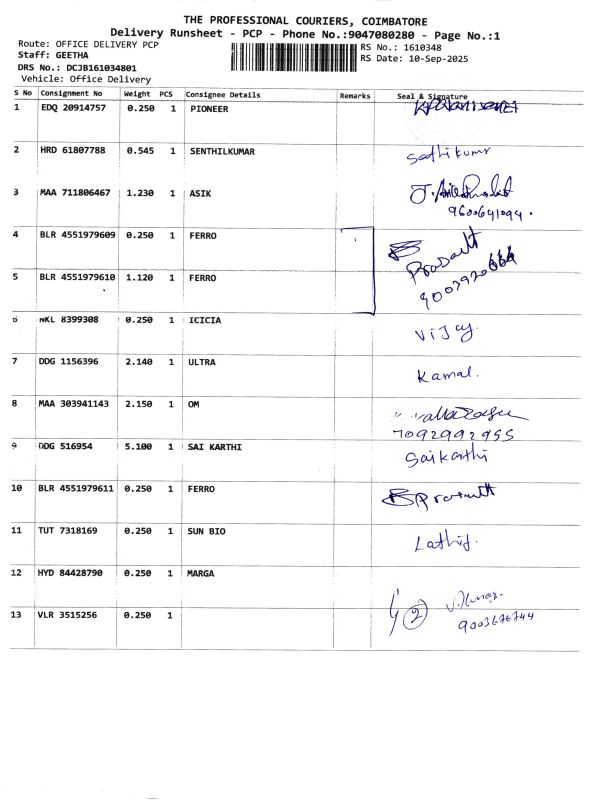 THE PROFESSIONAL COURIERS, COIMBATORE
Delivery Runsheet - PCP - Phone No.:9047080280 - Page No.:1
Route: OFFICE DELIVERY PCP RS No.: 1610348
Staff: GEETHA RS Date: 10-Sep-2025
DRS No.: DCJB161034801
Vehicle: Office Delivery
S No Consignment No Weight PCS Consignee Details Remarks Seal & Signature
1 EDQ 20914757 0.250 1 PIONEER
2 HRD 61807788 0.545 1 SENTHILKUMAR Senthilkumar
3 MAA 711806467 1.230 1 ASIK
9600641094.
4 BLR 4551979609 0.250 1 FERRO Prasath
5 BLR 4551979610 1.120 1 FERRO
6 NKL 8399308 0.250 1 ICICIA Vijay.
7 DDG 1156396 2.140 1 ULTRA Kamal.
8 MAA 303941143 2.150 1 OM
7092992955
9 DDG 516954 5.100 1 SAI KARTHI Saikarthi
10 BLR 4551979611 0.250 1 FERRO Prasath
11 TUT 7318169 0.250 1 SUN BIO Lathif.
12 HYD 84428790 0.250 1 MARGA
13 VLR 3515256 0.250 1 2